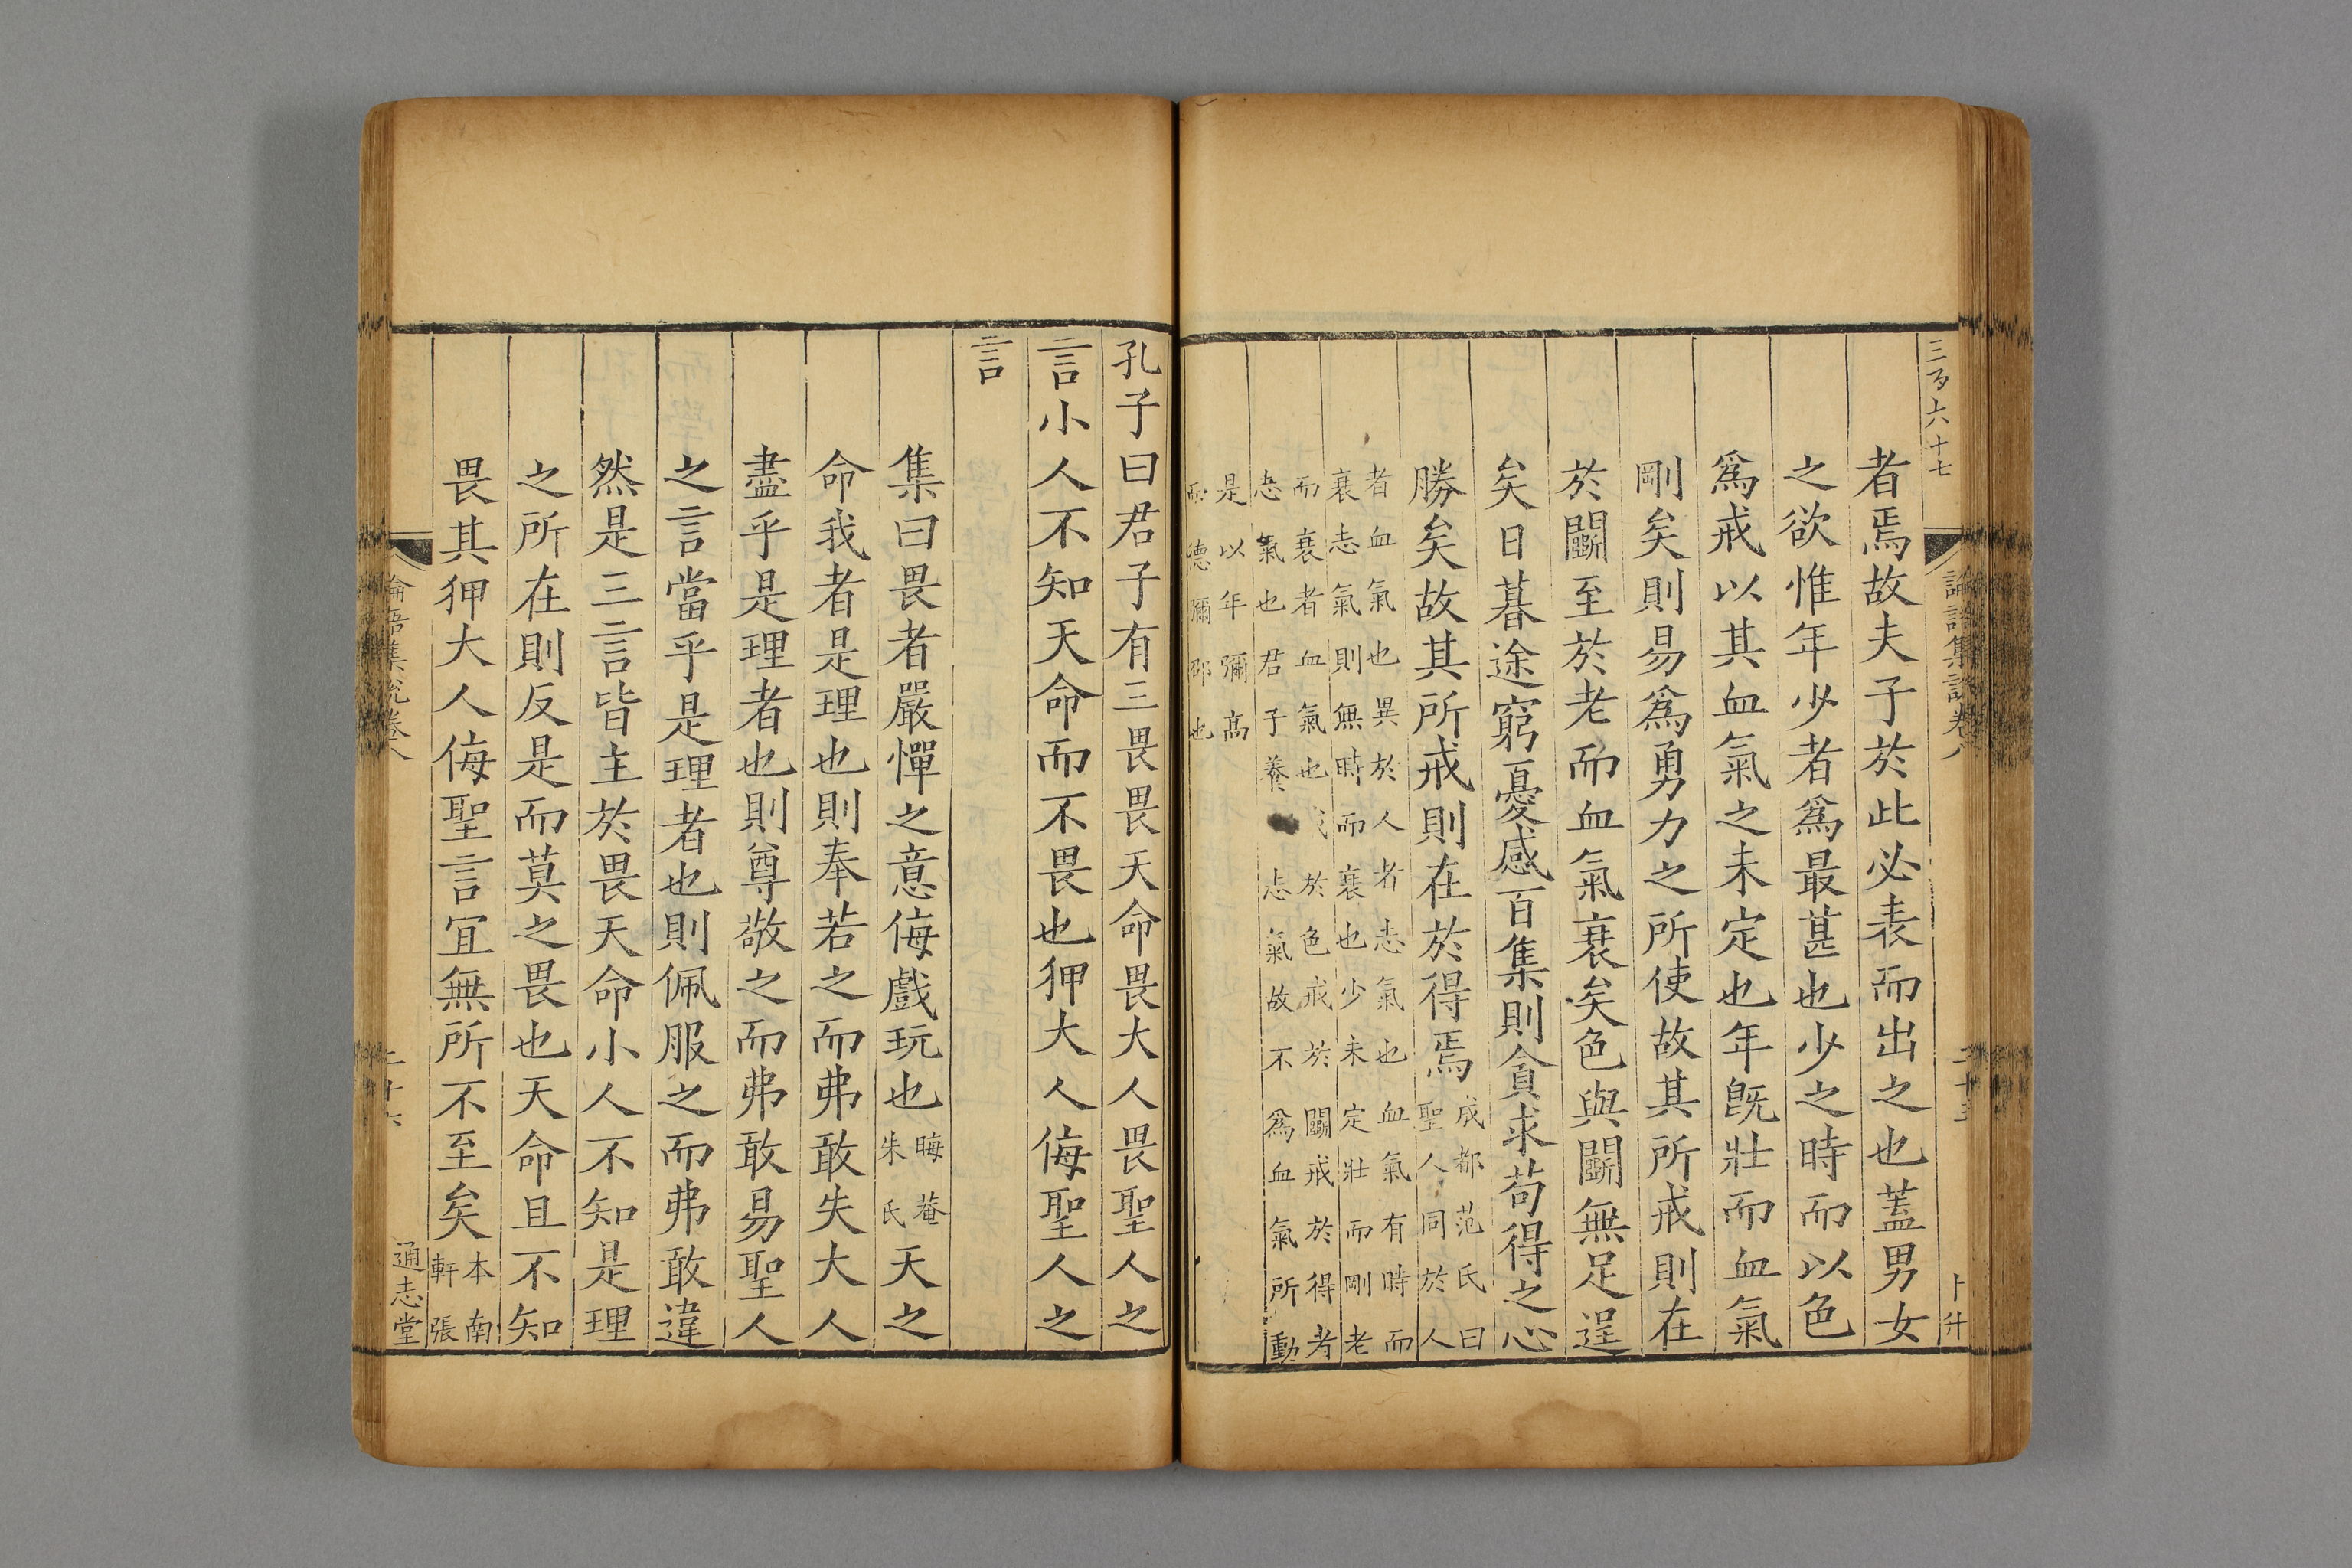 三百六十七
者焉故夫子於此必表而出之也蓋男女
之欲惟年少者爲最甚也少之時而以色
爲戒以其血氣之未定也年旣壯而血氣
剛矣則易爲勇力之所使故其所戒則在
於鬭至於老而血氣衰矣色與鬭無足逞
矣日暮途窮憂慼百集則貪求苟得之心
勝矣故其所戒則在於得焉
成都范氏曰
聖人同於人
者血氣也異於人者志氣也血氣有時而
衰志氣則無時而衰也少未定壯而剛老
而衰者血氣也戒於色戒於鬭戒於得者
志氣也君子養志氣故不爲血氣所動
是以年彌高
而德彌邵也
論語集說卷八
二十五
卜升
孔子曰君子有三畏畏天命畏大人畏聖人之
言小人不知天命而不畏也狎大人侮聖人之
言
集曰畏者嚴憚之意侮戲玩也
晦菴
朱氏
天之
命我者是理也則奉若之而弗敢失大人
盡乎是理者也則尊敬之而弗敢易聖人
之言當乎是理者也則佩服之而弗敢違
然是三言皆主於畏天命小人不知是理
之所在則反是而莫之畏也天命且不知
畏其狎大人侮聖言宜無所不至矣
本南
軒張
論語集說卷八
二十六
通志堂